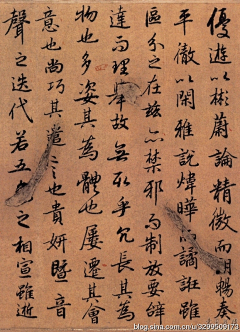 優遊以彬蔚論精微而朗暢奏
平徹以閑雅說煒曄譎誑雖
區分之在茲亦禁邪而制放要辭
達而理舉故無取乎冗長其為
物也多姿其為體也屢遷其會
意也尚巧其遣言也貴妍暨音
聲之迭代若五色之相宣雖逝
blog.sina.com.cn/u/3299500173